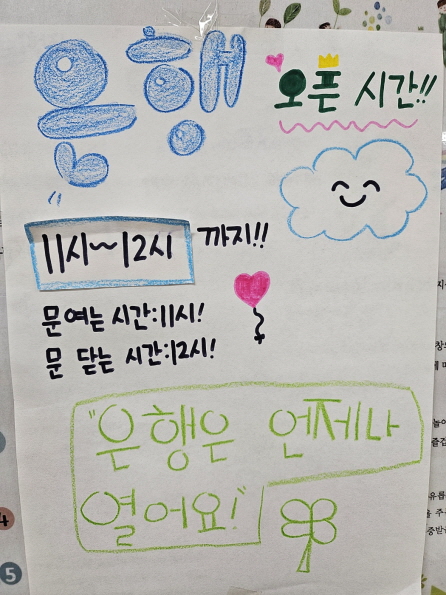 은행
오픈 시간!!
11시~12시 까지!!
문여는 시간:11시!
문 닫는 시간:12시!
"은행은 언제나
열어요!"
4
5